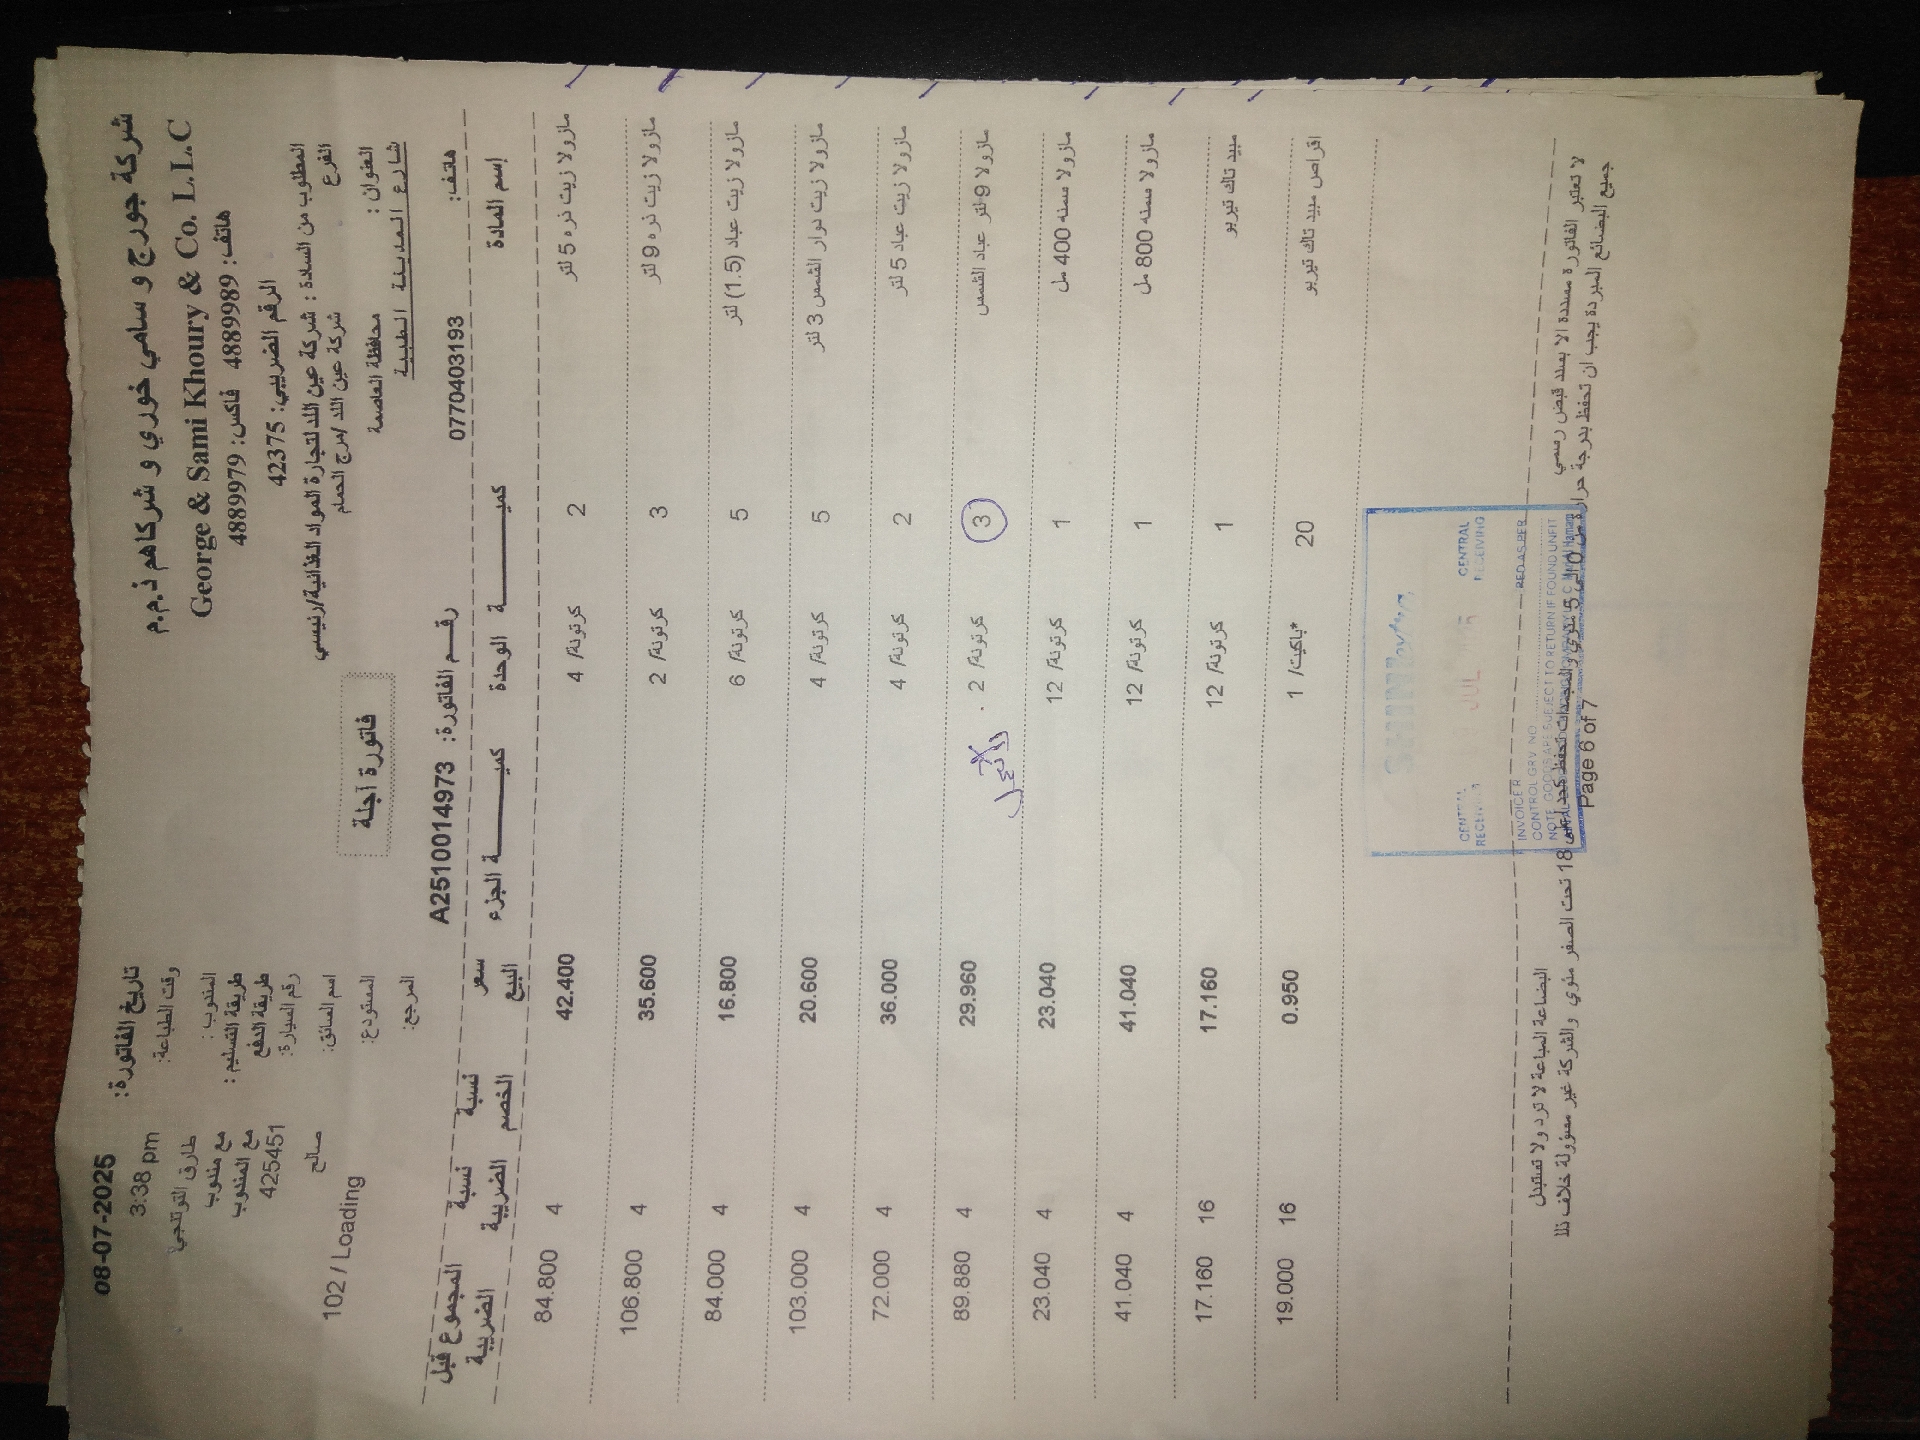 شركة جورج و سامي خوري و شركاهم ذ.م.م
George & Sami Khoury & Co. L.L.C
هاتف: 4889989 فاكس: 4889979
الرقم الضريبي: 42375
المطلوب من السادة : شركة عين اللد لتجارة المواد الغذائية/رئيسي
الفرع شركة عين اللد /مرج الحمام
العنوان : محافظة العاصمة
شارع المدينة الطبية
هاتف: 0770403193
فاتورة آجلة
رقم الفاتورة: A2510014973
تاريخ الفاتورة: 08-07-2025
وقت الطباعة: 3:38 pm
المندوب: طارق التوتنجي
طريقة التسليم : مع مندوب
طريقة الدفع مع المندوب
رقم السيارة: 425451
اسم السائق: صالح
المستودع: 102 / Loading
المرجع:
إسم المادة كميـة الوحدة كميـة الجزء سعر البيع نسبة الخصم نسبة الضريبة المجموع قبل الضريبة
مازولا زيت ذره 5 لتر 2 كرتونة/ 4 42.400 4 84.800
مازولا زيت ذره 9 لتر 3 كرتونة/ 2 35.600 4 106.800
مازولا زيت عباد (1.5) لتر 5 كرتونة/ 6 16.800 4 84.000
مازولا زيت دوار الشمس 3 لتر 5 كرتونة/ 4 20.600 4 103.000
مازولا زيت عباد 5 لتر 2 كرتونة/ 4 36.000 4 72.000
مازولا 9 لتر عباد الشمس 3 كرتونة/ 2 29.960 4 89.880
مازولا سمنه 400 مل 1 كرتونة/ 12 23.040 4 23.040
مازولا سمنه 800 مل 1 كرتونة/ 12 41.040 4 41.040
مبيد تاك تيريو 1 كرتونة/ 12 17.160 16 17.160
اقراص مبيد تاك تيريو 20 باكيت/ 1* 0.950 16 19.000
CENTRAL RECEIVING JUL CENTRAL RECEIVING
INVOICE R RED AS PER
CONTROL GRV NO
NOTE GOODS ARE SUBJECT TO RETURN IF FOUND UNFIT
لا تعتبر الفاتورة مسددة الا بسند قبض رسمي البضاعة المباعة لا ترد ولا تستبدل
جميع البضائع المبردة يجب ان تحفظ بدرجة حرارة من 0 الى 5 مئوي والمجمدات تحفظ كحد أدنى 18 تحت الصفر مئوي والشركة غير مسؤولة خلاف ذلك
Page 6 of 7